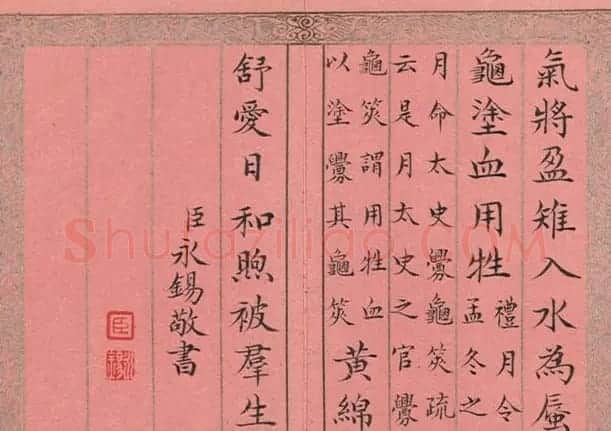 氣將盈雉入水為蜃
龜塗血用牲
禮月令
孟冬之
月命太史釁龜筴疏
云是月太史之官釁
龜筴謂用牲血
以塗釁其龜筴
黃綿
舒愛日和煦被羣生
臣永錫敬書
臣
Shufaziliao.COM